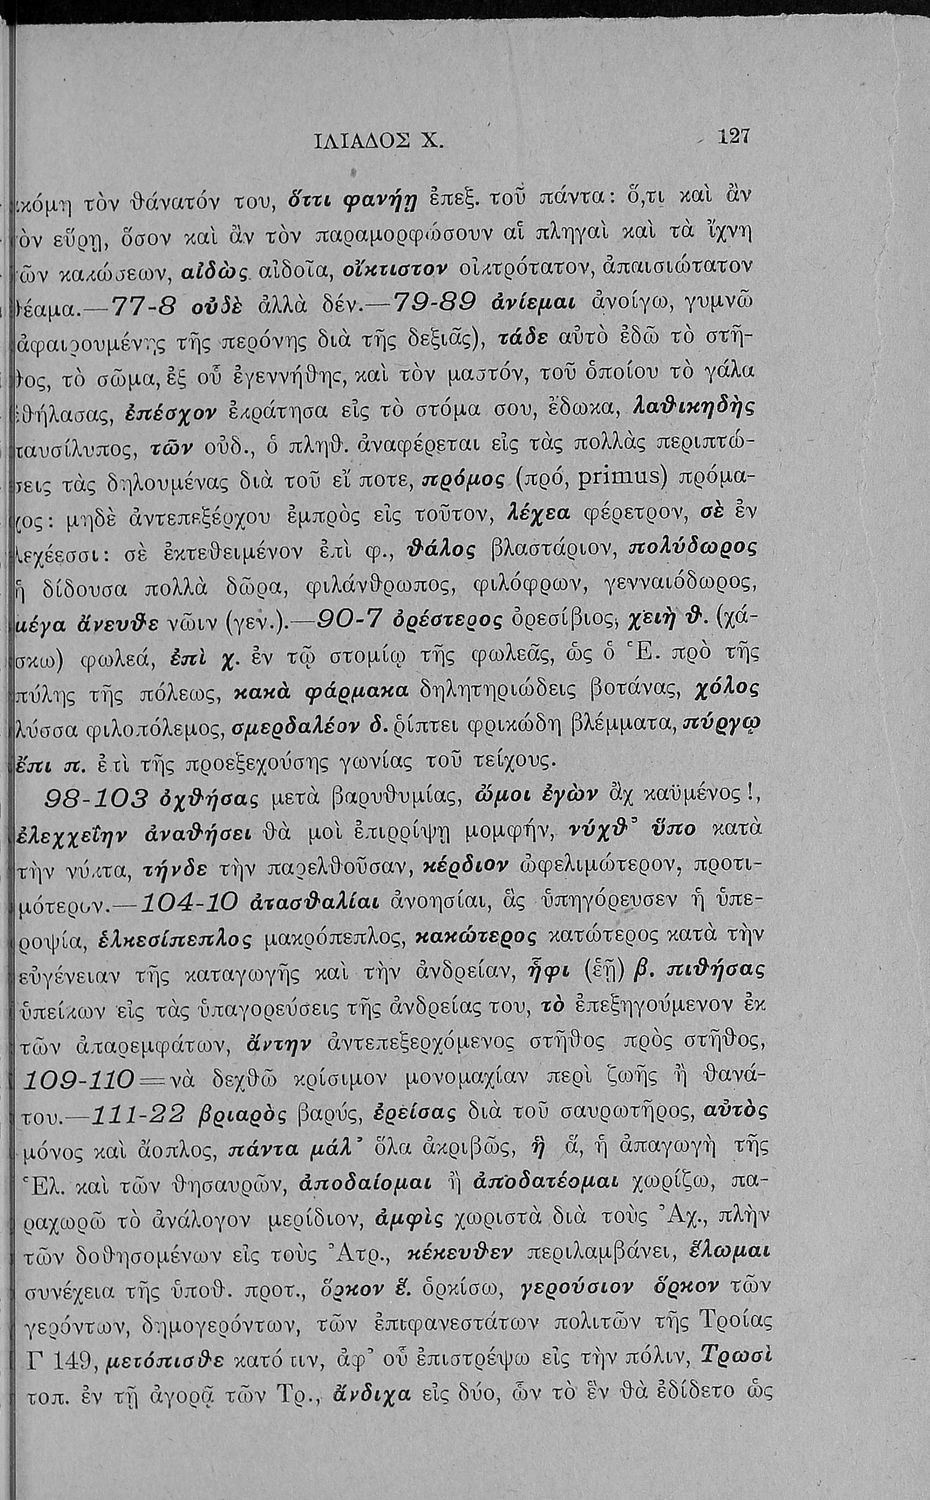 ΙΛΙΑΔΟΣ Χ. 127
κόμη τὸν θάνατόν του, ὅττι φανήῃ ἐπεξ. τοῦ πάντα: ὅ,τι καὶ ἂν
ὸν εὕρῃ, ὅσον καὶ ἂν τὸν παραμορφώσουν αἱ πληγαὶ καὶ τὰ ἴχνη
ῶν κακώσεων, αἰδὼς αἰδοῖα, οἴκτιστον οἰκτρότατον, ἀπαισιώτατον
έαμα.—77-8 οὐδὲ ἀλλὰ δέν.—79-89 ἀνίεμαι ἀνοίγω, γυμνῶ
ἀφαιρουμένης τῆς περόνης διὰ τῆς δεξιᾶς), τάδε αὐτὸ ἐδῶ τὸ στῆ-
ος, τὸ σῶμα, ἐξ οὗ ἐγεννήθης, καὶ τὸν μαστόν, τοῦ ὁποίου τὸ γάλα
θήλασας, ἐπέσχον ἐκράτησα εἰς τὸ στόμα σου, ἔδωκα, λαθικηδὴς
παυσίλυπος, τῶν οὐδ., ὁ πληθ. ἀναφέρεται εἰς τὰς πολλὰς περιπτώ-
σεις τὰς δηλουμένας διὰ τοῦ εἴ ποτε, πρόμος (πρό, primus) πρόμα-
χος: μηδὲ ἀντεπεξέρχου ἐμπρὸς εἰς τοῦτον, λέχεα φέρετρον, σὲ ἐν
λεχέεσσι: σὲ ἐκτεθειμένον ἐπὶ φ., θάλος βλαστάριον, πολύδωρος
ἡ δίδουσα πολλὰ δῶρα, φιλάνθρωπος, φιλόφρων, γενναιόδωρος,
μέγα ἄνευθε νῶιν (γεν.).—90-7 ὀρέστερος ὀρεσίβιος, χειὴ θ. (χά-
σκω) φωλεά, ἐπὶ χ. ἐν τῷ στομίῳ τῆς φωλεᾶς, ὡς ὁ Ἕ. πρὸ τῆς
πύλης τῆς πόλεως, κακὰ φάρμακα δηλητηριώδεις βοτάνας, χόλος
λύσσα φιλοπόλεμος, σμερδαλέον δ. ῥίπτει φρικώδη βλέμματα, πύργῳ
ἔπι π. ἐπὶ τῆς προεξεχούσης γωνίας τοῦ τείχους.
98-103 ὀχθήσας μετὰ βαρυθυμίας, ὤμοι ἐγὼν ἂχ καϋμένος!,
ἐλεγχείην ἀναθήσει θὰ μοὶ ἐπιρρίψῃ μομφήν, νύχθ᾽ ὕπο κατὰ
τὴν νύκτα, τήνδε τὴν παρελθοῦσαν, κέρδιον ὠφελιμώτερον, προτι-
μότερον.—104-10 ἀτασθαλίαι ἀνοησίαι, ἃς ὑπηγόρευσεν ἡ ὑπε-
ροψία, ἑλκεσίπεπλος μακρόπεπλος, κακώτερος κατώτερος κατὰ τὴν
εὐγένειαν τῆς καταγωγῆς καὶ τὴν ἀνδρείαν, ἧφι (ἑῇ) β. πιθήσας
ὑπείκων εἰς τὰς ὑπαγορεύσεις τῆς ἀνδρείας του, τὸ ἐπεξηγούμενον ἐκ
τῶν ἀπαρεμφάτων, ἄντην ἀντεπεξερχόμενος στῆθος πρὸς στῆθος,
109-110=νὰ δεχθῶ κρίσιμον μονομαχίαν περὶ ζωῆς ἢ θανά-
του.—111-22 βριαρὸς βαρύς, ἐρείσας διὰ τοῦ σαυρωτῆρος, αὐτὸς
μόνος καὶ ἄοπλος, πάντα μάλ᾽ ὅλα ἀκριβῶς, ἣ ἅ, ἡ ἀπαγωγὴ τῆς
Ἑλ. καὶ τῶν θησαυρῶν, ἀποδαίομαι ἢ ἀποδατέομαι χωρίζω, πα-
ραχωρῶ τὸ ἀνάλογον μερίδιον, ἀμφὶς χωριστὰ διὰ τοὺς Ἀχ., πλὴν
τῶν δοθησομένων εἰς τοὺς Ἀτρ., κέκευθεν περιλαμβάνει, ἕλωμαι
συνέχεια τῆς ὑποθ. προτ., ὅρκον ἕ. ὁρκίσω, γερούσιον ὅρκον τῶν
γερόντων, δημογερόντων, τῶν ἐπιφανεστάτων πολιτῶν τῆς Τροίας
Γ 149, μετόπισθε κατόπιν, ἀφ᾽ οὗ ἐπιστρέψω εἰς τὴν πόλιν, Τρωσὶ
τοπ. ἐν τῇ ἀγορᾷ τῶν Τρ., ἄνδιχα εἰς δύο, ὧν τὸ ἓν θὰ ἐδίδετο ὡς